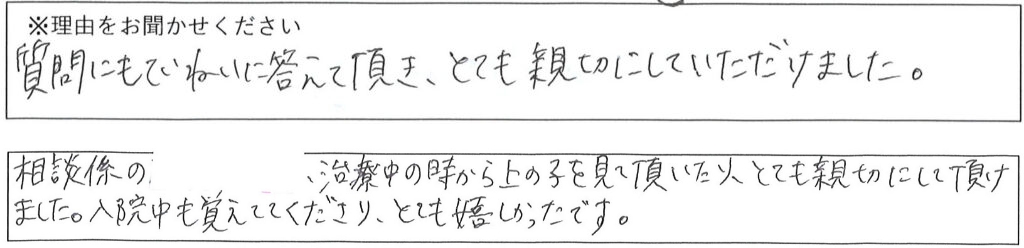 ※理由をお聞かせください
質問にもていねいに答えて頂き、とても親切にしていただけました。
相談係の、治療中の時から上の子を見て頂いたり、とても親切にして頂け
ました。入院中も覚えててくださり、とても嬉しかったです。